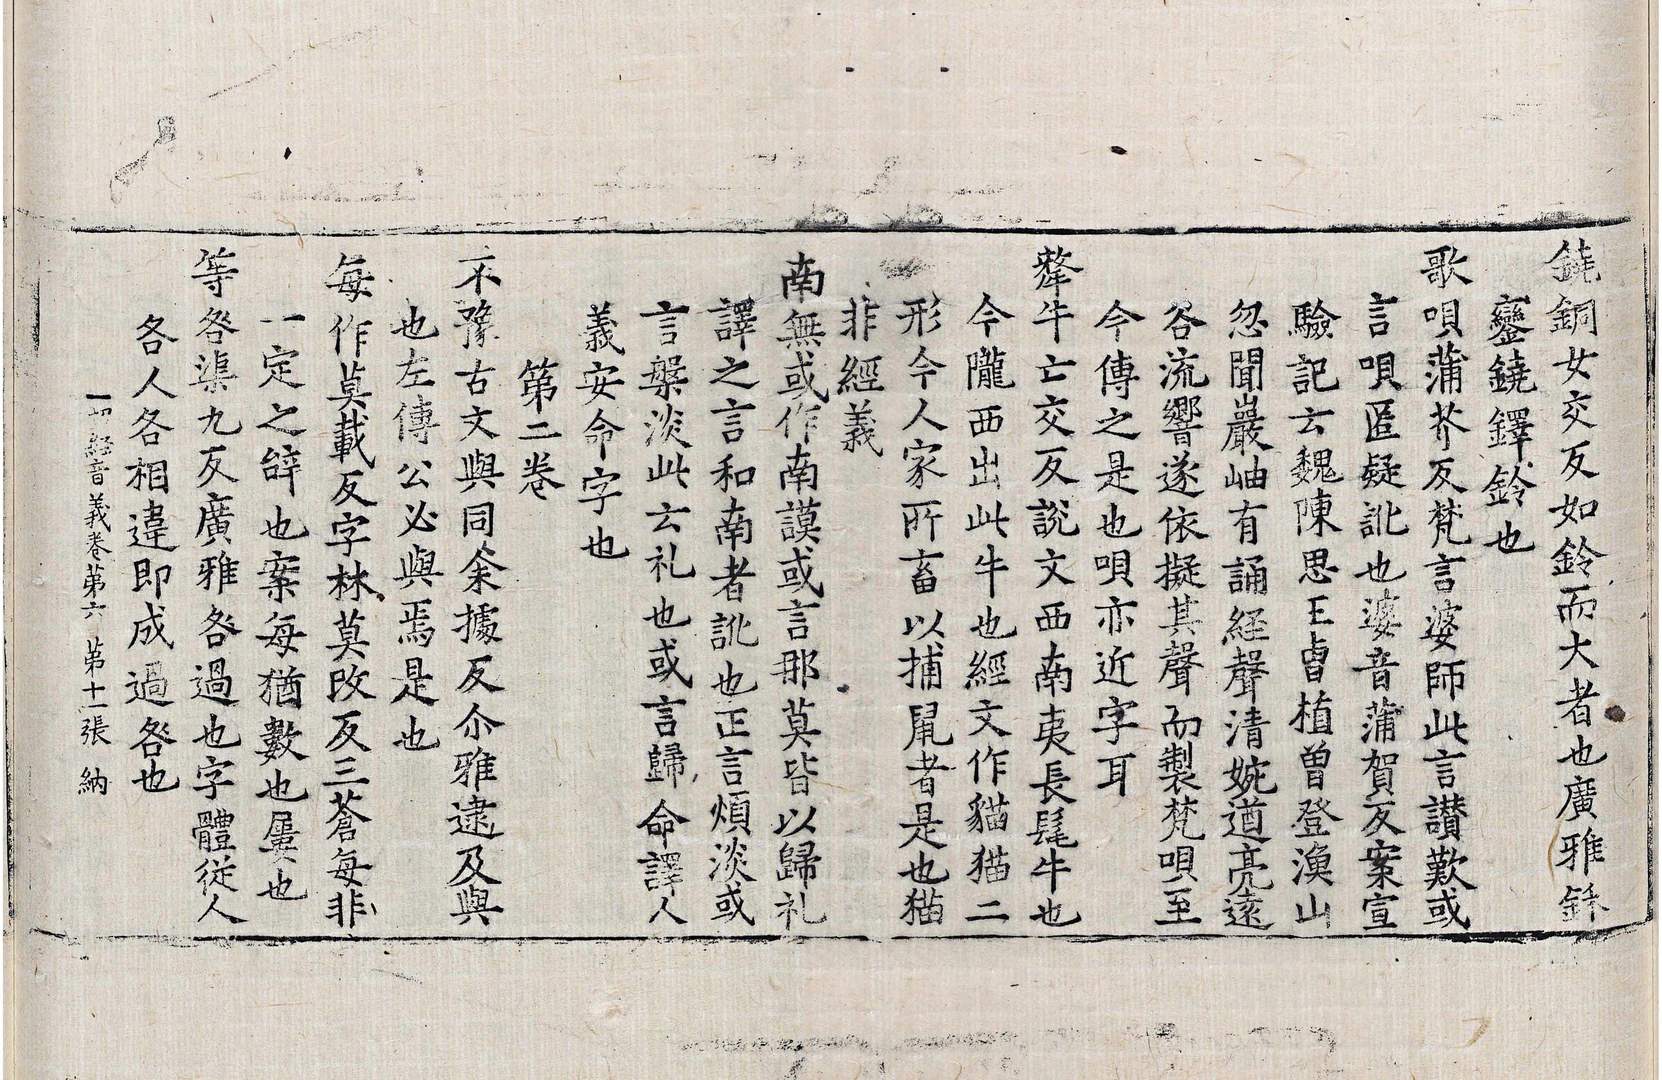 鐃銅女交反如鈴而大者也廣雅鉌
鑾鐃鐸鈴也
歌唄蒲芥反梵言婆師此言讃歎或
言唄匿疑訛也婆音蒲賀反案宣
驗記云魏陳思王曺植曽登漁山
忽聞巖岫有誦経聲清婉遒亮遠
谷流響遂依擬其聲而製梵唄至
今傳之是也唄亦近字耳
犛牛亡交反說文西南夷長髦牛也
今隴西出此牛也經文作貓猫二
形今人家所畜以捕鼠者是也猫
非經義
南無或作南謨或言那莫皆以歸礼
譯之言和南者訛也正言煩淡或
言槃淡此云礼也或言歸命譯人
義安命字也
第二卷
不豫古文與同余據反尒雅逮及與
也左傳公必與焉是也
每作莫載反字林莫改反三蒼每非
一定之辝也案每猶數也屢也
等咎渠九反廣雅咎過也字體從人
各人各相違即成過咎也
一切経音義卷第六 第十一張 納